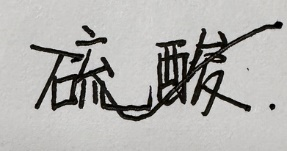 硫酸.